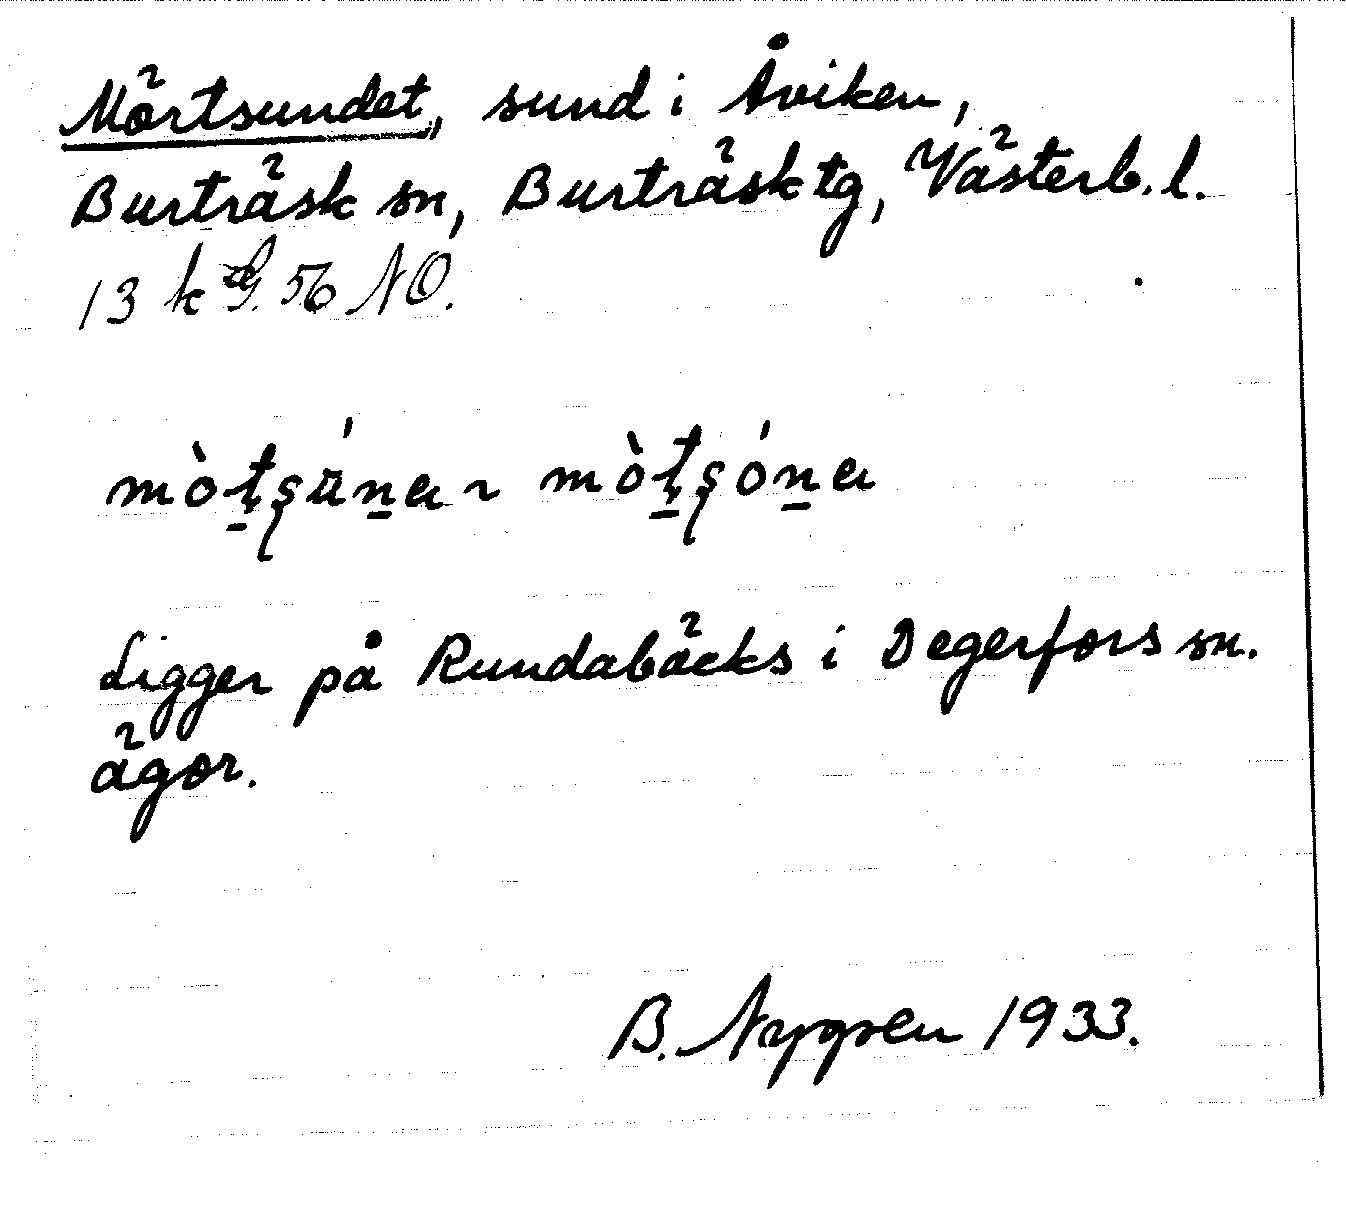 Mörtsundet, sund i Åviken,
Burträsk sn, Burträsk tg, Västerb. l.
13 k 56 NO.
mòṯʂúṉa ~ mòṯʂóṉa
Ligger på Rundabäcks i Degerfors sn.
ägor.
B. Nygren 1933.